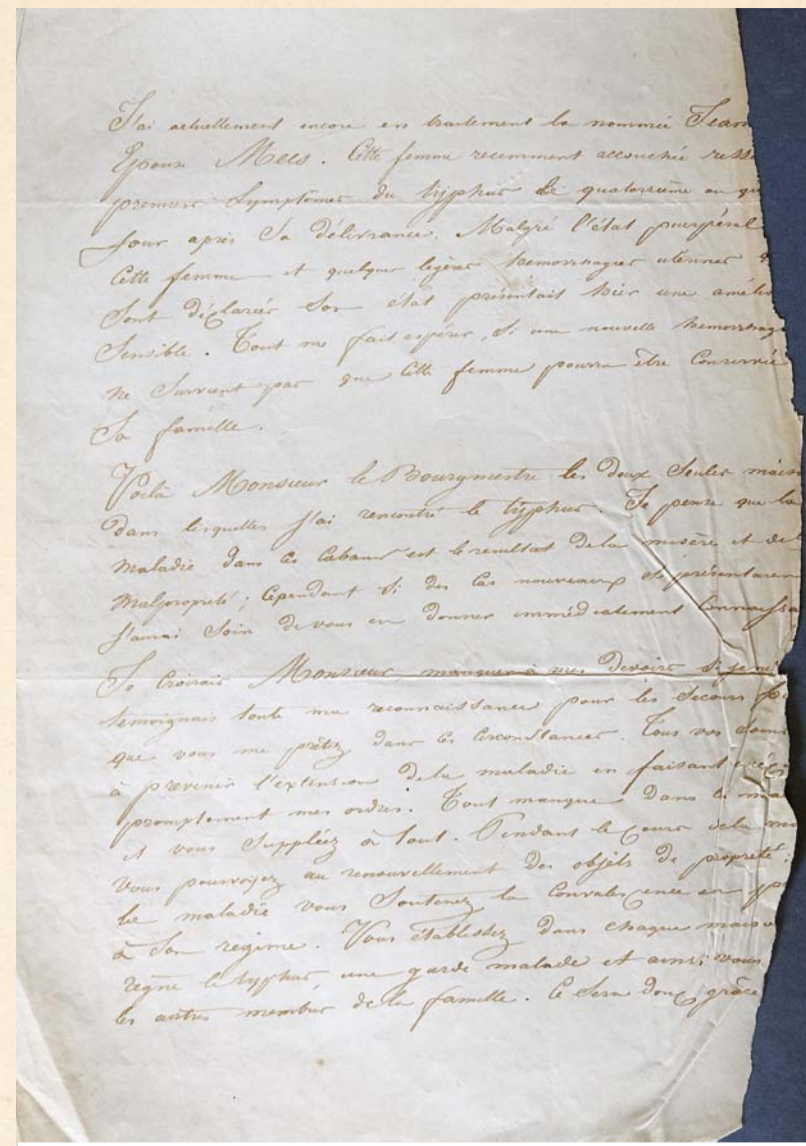 J'ai actuellement encore en traitement la nommée Jean
Epouse Mees. Cette femme recemment accouchée ress
premiers symptômes du typhus le quatorzieme ou qu
jour après sa délivrance. Malgré l'état puerpéral
Cette femme et quelques legères hemorrhagies utérines q
sont déclarées son état présentait hier une amélio
sensible. Tout me fait espérer, si une nouvelle hemorrhag
ne survient pas que cette femme pourra être conservée
sa famille.
Voilà Monsieur le Bourgmestre les deux seules maiso
dans lesquelles j'ai rencontré le typhus. Je pense que la
maladie dans ces cabanes est le resultat de la misère et de l
malpropreté; cependant si des cas nouveaux se présentaien
j'aurai soin de vous en donner immédiatement connaissa
Je croirais Monsieur, manquer à mes devoirs si je ne
temoignais toute ma reconnaissance pour les secours
que vous me prêtez dans ces circonstances. Tous vos soins
à prevenir l'extension de la maladie en faisant exéc
promptement mes ordres. Tout manque dans les ma
et vous suppléez à tout. Pendant le cours de la
vous pourvoyez au renouvellement des objets de propreté;
la maladie vous soutenez la convalescence en
à son regime. Vous établissez dans chaque maiso
regne le typhus, une garde malade et ainsi vous
les autres membres de la famille. Ce sera donc grâce